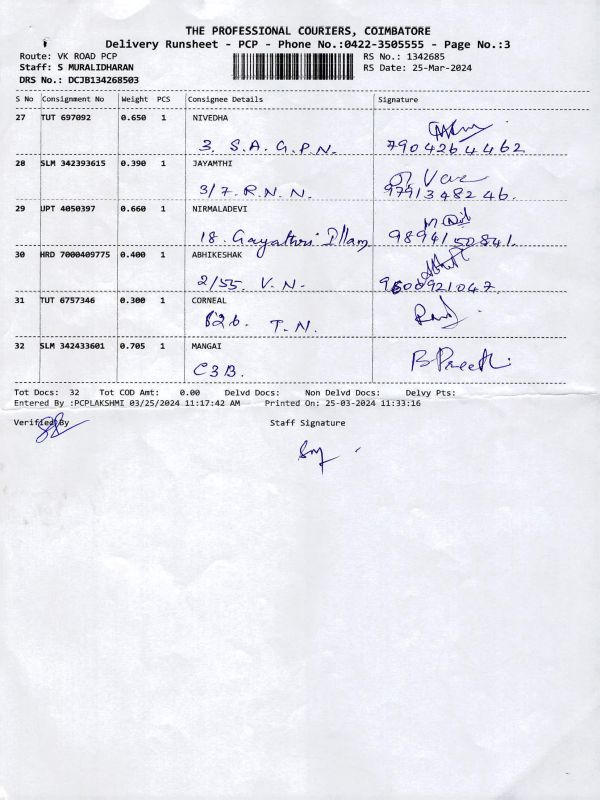 THE PROFESSIONAL COURIERS, COIMBATORE
Delivery Runsheet - PCP - Phone No.:0422-3505555 - Page No.:3
Route: VK ROAD PCP RS No.: 1342685
Staff: S MURALIDHARAN RS Date: 25-Mar-2024
DRS No.: DCJB134268503
S No Consignment No Weight PCS Consignee Details Signature
27 TUT 697092 0.650 1 NIVEDHA
3. S.A.G.P.N. 7904264462
28 SLM 342393615 0.390 1 JAYAMTHI
3/7.R.N.N. 9791348246.
29 UPT 4050397 0.660 1 NIRMALADEVI
18. Gayathri Illam 9894150841.
30 HRD 7000409775 0.400 1 ABHIKESHAK
2/55. V.N. 9600921047.
31 TUT 6757346 0.300 1 CORNEAL
B26. T.N.
32 SLM 342433601 0.705 1 MANGAI
C3B. B Preethi
Tot Docs: 32 Tot COD Amt: 0.00 Delvd Docs: Non Delvd Docs: Delvy Pts:
Entered By :PCPLAKSHMI 03/25/2024 11:17:42 AM Printed On: 25-03-2024 11:33:16
Verified By Staff Signature